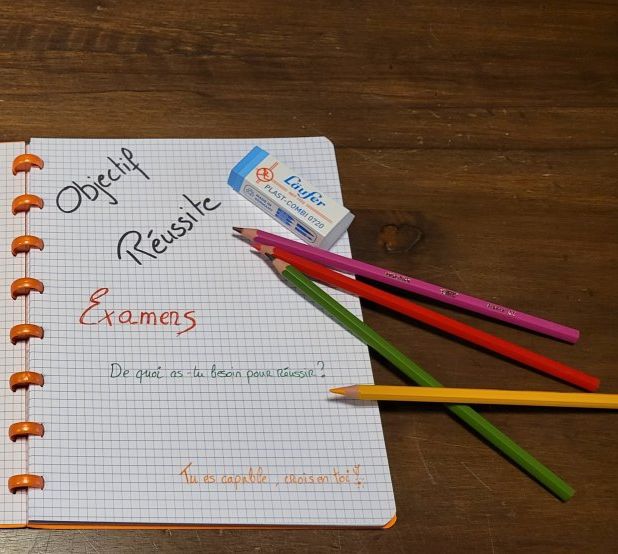 Objectif
Réussite
Examens
De quoi as-tu besoin pour réussir?
Tu es capable, crois en toi!
Läufer
PLAST-COMBI 0720